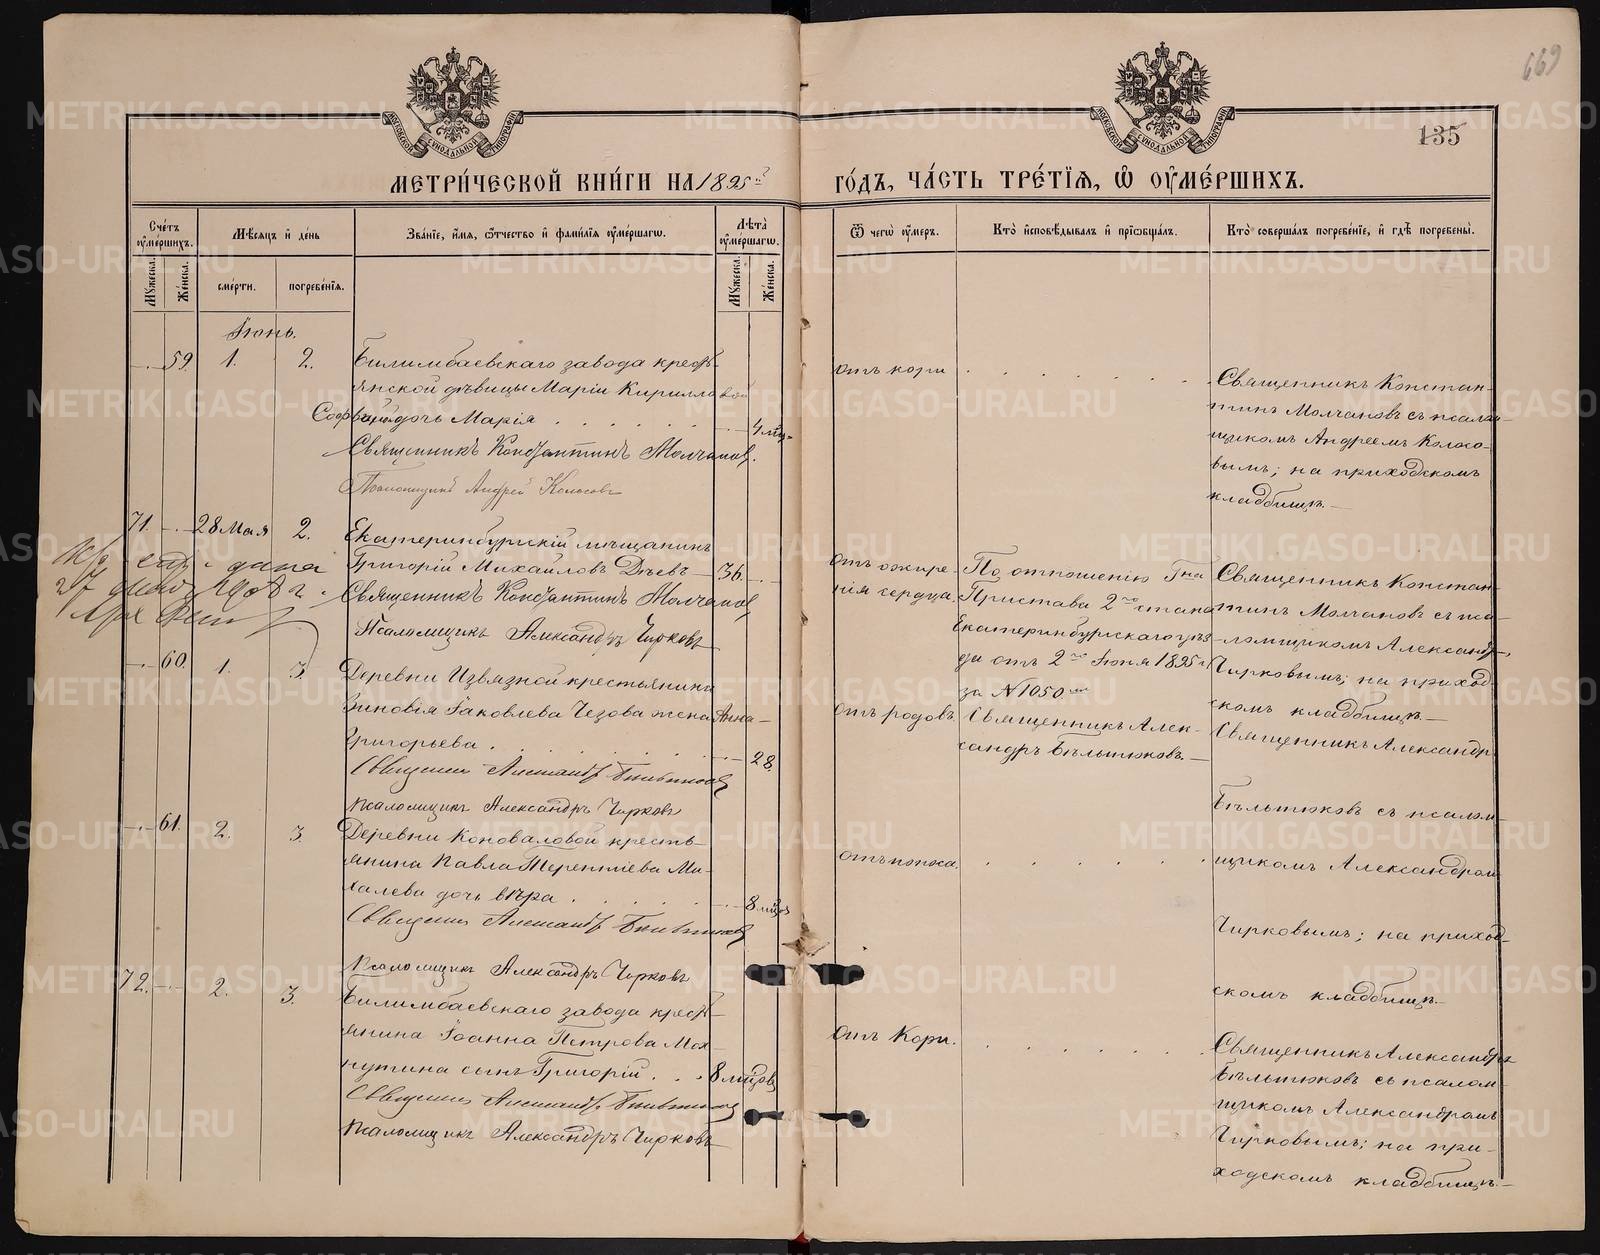 669
135
МЕТРИ́ЧЕСКОЙ КНИ́ГИ НА 1895й
ГО́ДЪ, ЧА́СТЬ ТРЕ́ТЇѦ, Ѿ ОУМЕ́РШИХЪ.
Сче́тъ оуме́ршихъ.
Мѣ́сяцъ и день
Зва́нїе, и́мя, ѻ҆́тчество и фами́лїя оуме́ршагѡ.
Лѣ́та оуме́ршагѡ.
Ѿ чегѡ̀ оу́меръ.
Кто̀ исповѣ́дывалъ и прїѡбща́лъ.
Кто̀ соверша́лъ погребе́нїе, и гдѣ̀ погребены̀.
Му́жеска.
Же́нска.
сме́рти.
погребе́нїя.
Му́жеска.
Же́нска.
Іюнь.
59. 1. 2.
Билимбаевскаго завода кресть-
янской дѣвицы Маріи Кирилловой
дочь Марія 4 мѣс.
Священникъ Константинъ Молчановъ.
Псаломщикъ Андрей Колосовъ
отъ кори
Священникъ Констан-
тинъ Молчановъ съ псалом-
щикомъ Андреемъ Колосо-
вымъ; на приходскомъ
кладбищѣ.
71. 28 Мая 2.
Екатеринбургскій мѣщанинъ
Григорій Михайловъ Дѣевъ 36.
Священникъ Константинъ Молчановъ
Псаломщикъ Александръ Чирковъ
27 1908 г.
отъ ожире-
нія сердца.
По отношенію Гна
Пристава 2го стана
Екатеринбургскаго уѣз-
да отъ 2го Іюня 1895 г.
за № 1050
Священникъ Констан-
тинъ Молчановъ съ пса-
ломщикомъ Александр.
Чирковымъ; на приход-
скомъ кладбищѣ.
60. 1. 3.
Деревни Извязной крестьянина
Зиновія Іаковлева Чезова жена Анна
Григорьева 28.
Священникъ Александръ Бѣльтюковъ
Псаломщикъ Александръ Чирковъ
отъ родовъ
Священникъ Алек-
сандръ Бѣльтюковъ.
Священникъ Александръ
Бѣльтюковъ съ псалом-
щикомъ Александром
Чирковымъ; на приход-
скомъ кладбищѣ.
61. 2. 3.
Деревни Коноваловой кресть-
янина Павла Терентіева Ми-
халева дочь Вѣра 8 мѣсц.
Священникъ Александръ Бѣльтюковъ
Псаломщикъ Александръ Чирковъ
отъ поноса.
72. 2. 3.
Билимбаевскаго завода крест-
янина Іоанна Петрова Мох-
нутина сынъ Григорій 8 мѣсцов
Священникъ Александръ Бѣльтюковъ
Псаломщикъ Александръ Чирковъ
отъ Кори.
Священникъ Александръ
Бѣльтюковъ съ псалом-
щикомъ Александромъ
Чирковымъ; на при-
ходскомъ кладбищѣ.
METRIKI.GASO-URAL.RU